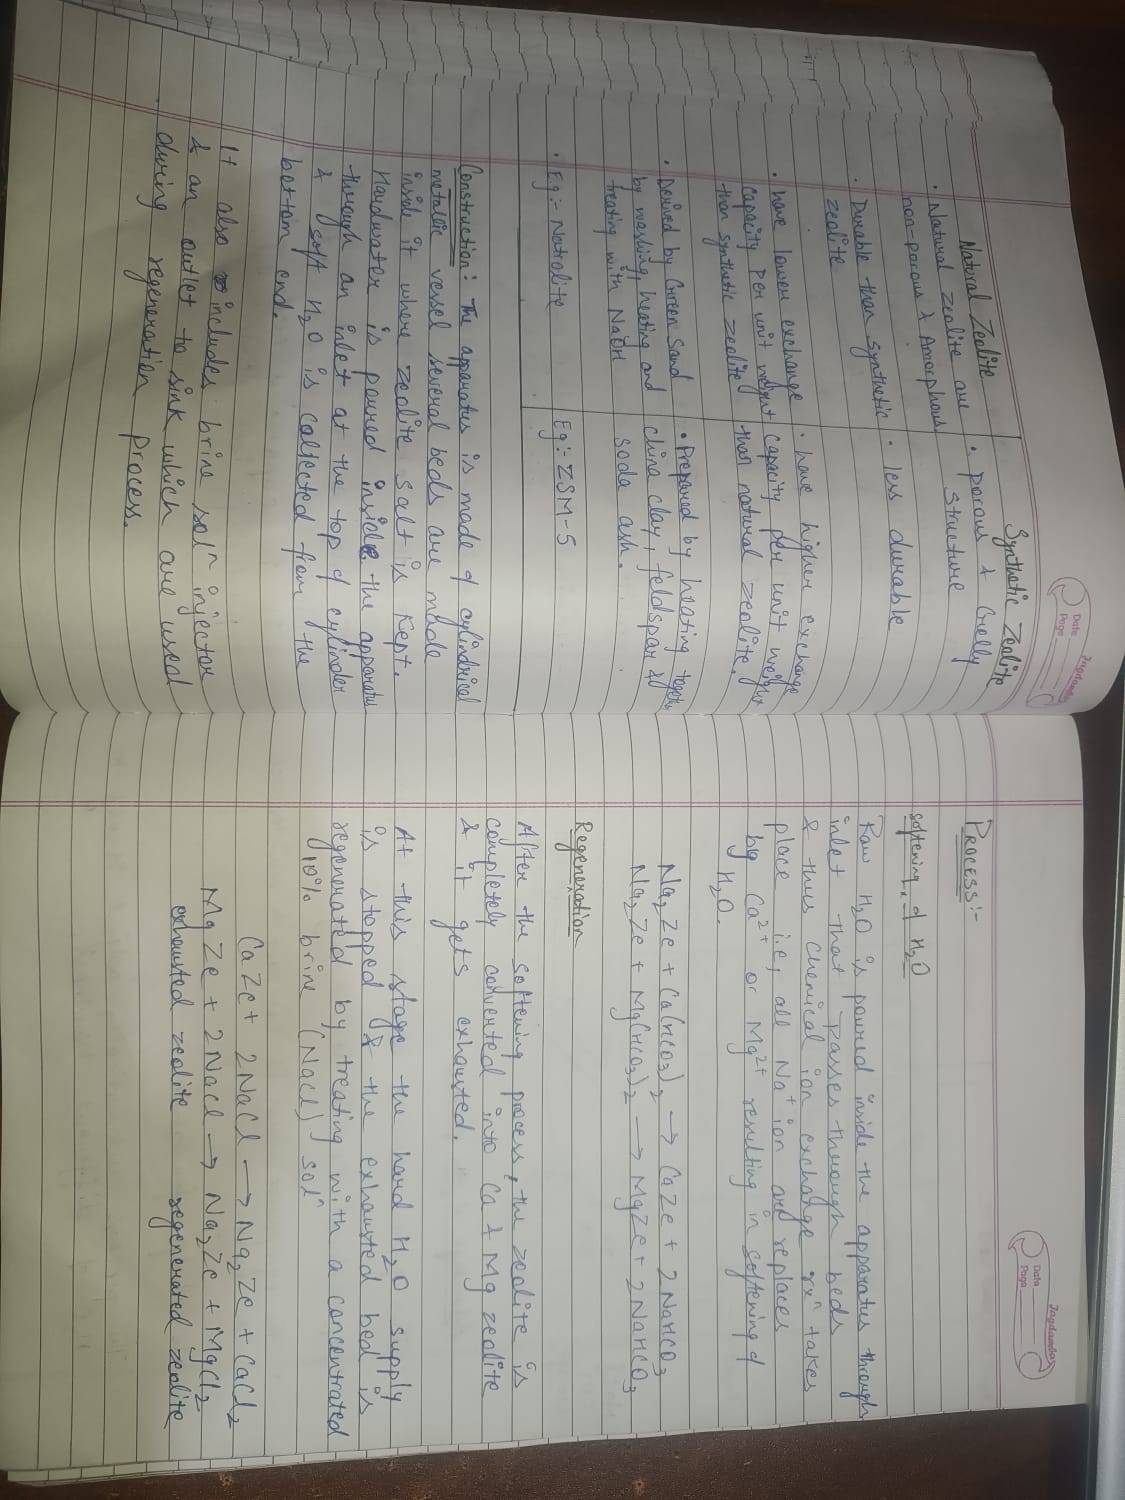 Jagdamba
Date
Page
Natural Zeolite
• Natural zeolite are
non-porous & Amorphous.
• Durable than synthetic
zeolite
• have lower exchange
capacity per unit weight
than synthetic zeolite
• Derived by Green Sand
by washing, heating and
treating with NaOH
• Eg:- Natrolite
Synthetic Zeolite
• porous & Gelly
structure
• less durable
• have higher exchange
capacity per unit weight
than natural zeolite.
• Prepared by heating together
china clay, feldspar &
soda ash.
Eg:- ZSM-5
Construction: The apparatus is made of cylindrical
metallic vessel several beds are made
inside it where zeolite salt is kept.
Hardwater is poured inside the apparatus
through an inlet at the top of cylinder
& soft H₂O is collected from the
bottom end.
It also includes brine solⁿ injector
& an outlet to sink which are used
during regeneration process.
Jagdamba
Date
Page
PROCESS:-
softening of H₂O
Raw H₂O is poured inside the apparatus through
inlet that passes through beds
& thus chemical ion exchange rxⁿ takes
place i.e, all Na⁺ ion are replaces
by Ca²⁺ or Mg²⁺ resulting in softening of
H₂O.
Na₂Ze + Ca(HCO₃)₂ → CaZe + 2NaHCO₃
Na₂Ze + Mg(HCO₃)₂ → MgZe + 2NaHCO₃
Regeneration
After the softening process, the zeolite is
completely converted into Ca & Mg zeolite
& it gets exhausted.
At this stage the hard H₂O supply
is stopped & the exhausted bed is
regenerated by treating with a concentrated
10% brine (NaCl) solⁿ
CaZe + 2NaCl → Na₂Ze + CaCl₂
MgZe + 2NaCl → Na₂Ze + MgCl₂
exhausted zeolite regenerated zeolite